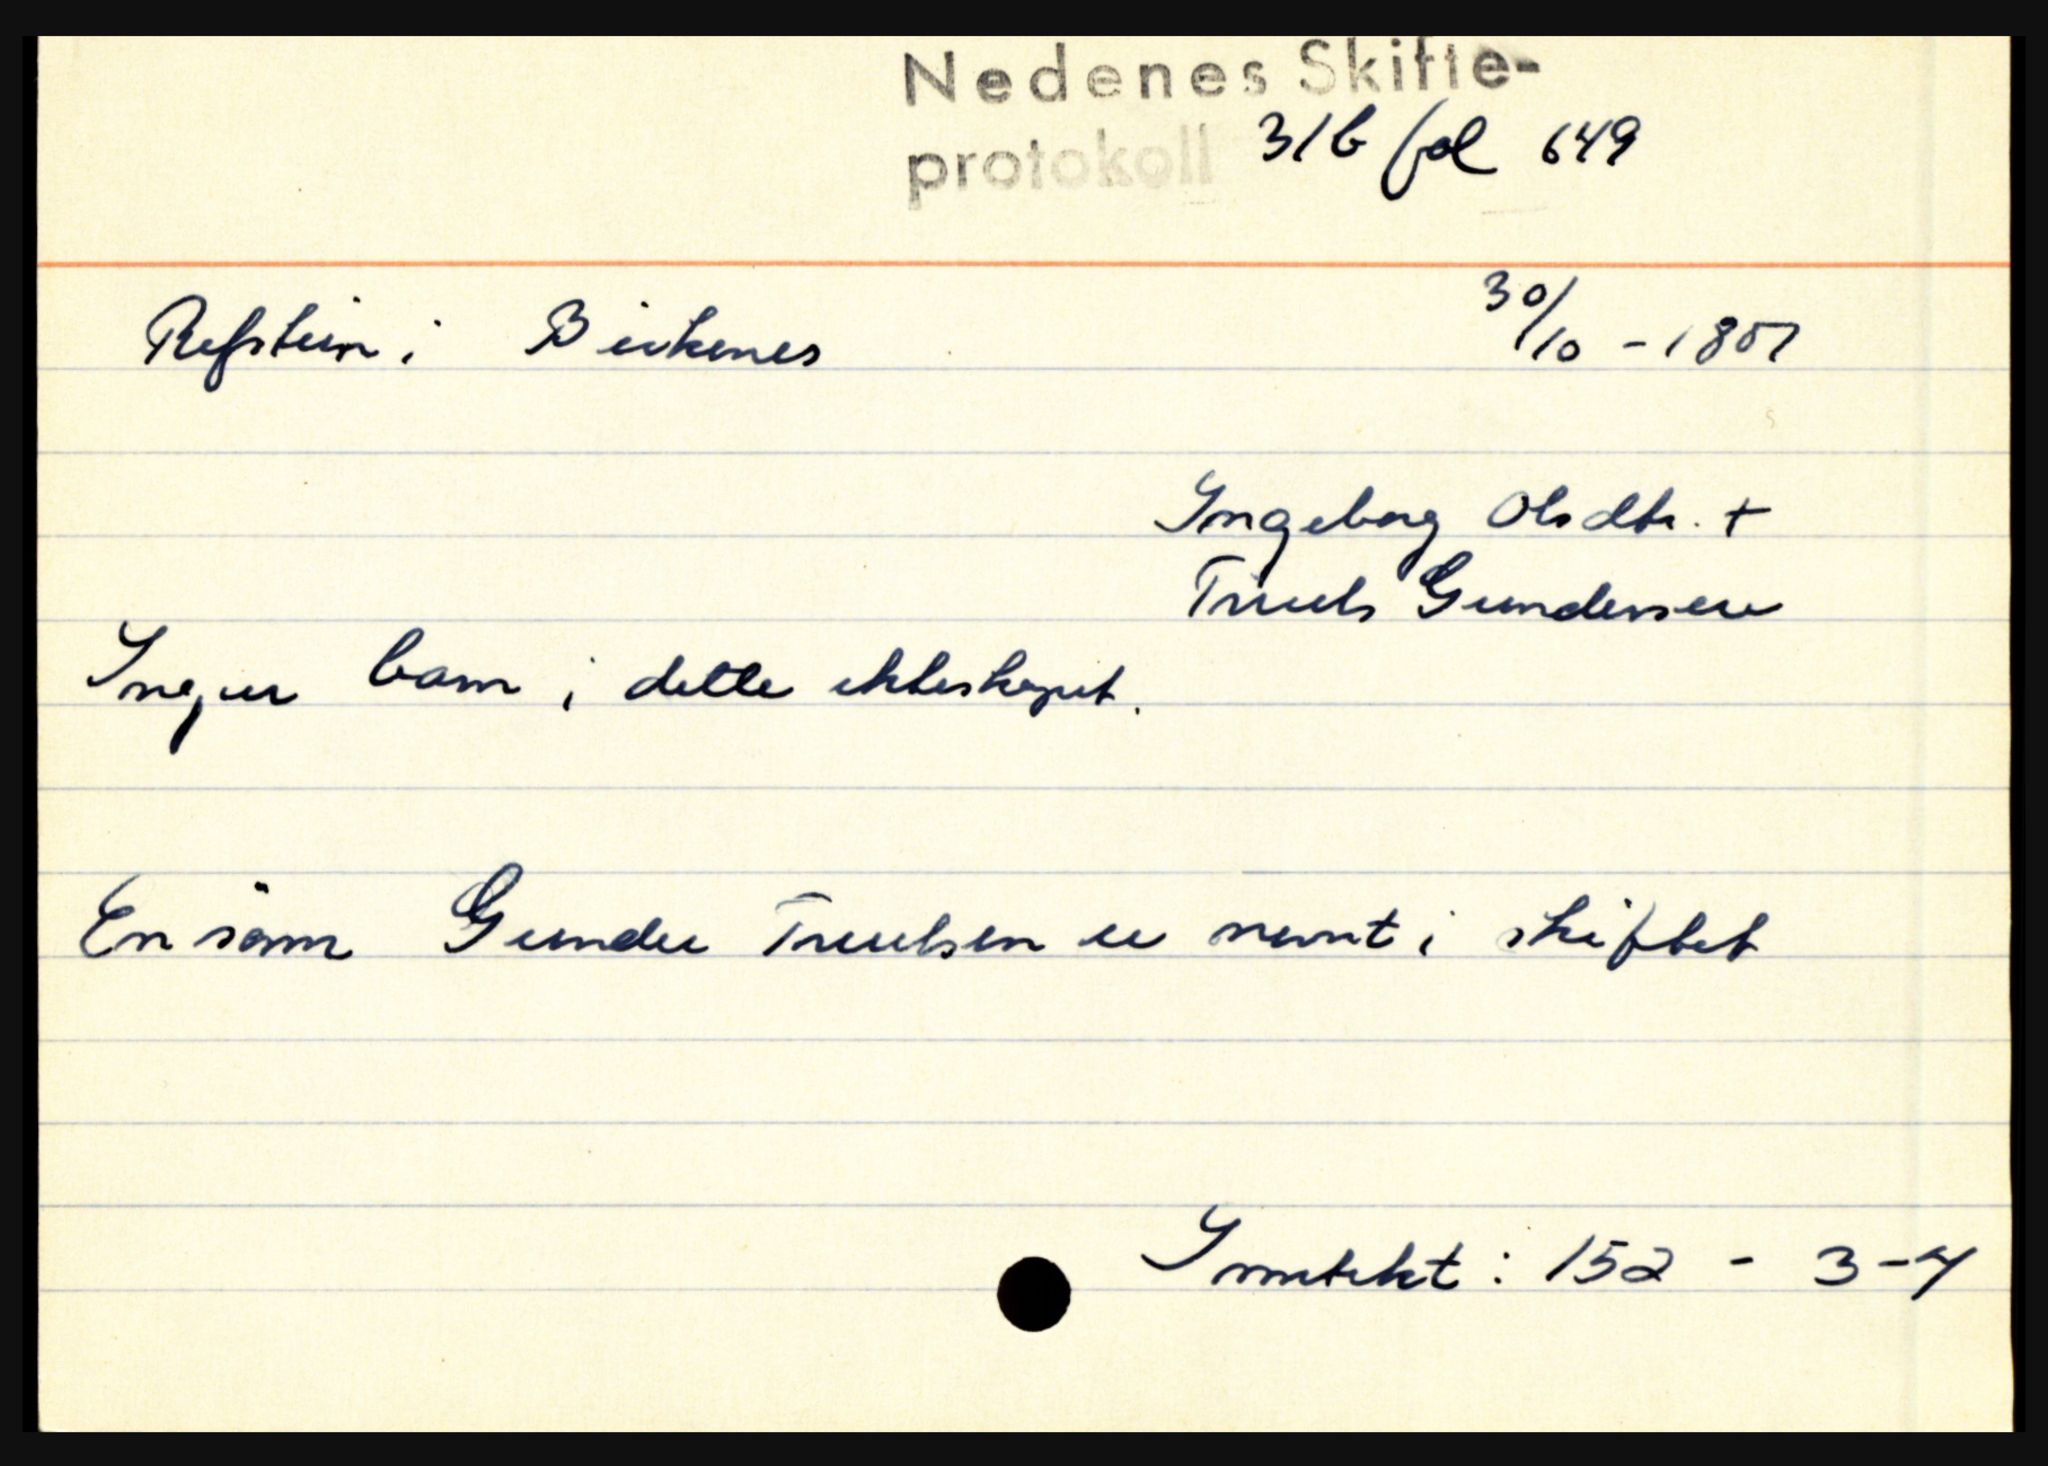 Nedenes Skifte-
protokoll 31b fol 649
Refstein i Birkenes 30/10 - 1801
Ingeborg Olsdtr. +
Truuls Gundersen
Ingen barn i dette ekteskapet.
En sönn Gunder Truulsen er nevnt i skiftet
Inntekt : 152 - 3 - 4